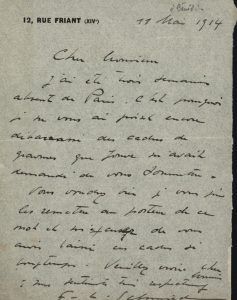 12, RUE FRIANT (XIVᵉ)
11 Mai 1914
Cher Monsieur
J'ai été trois semaines
absent de Paris. C'est pourquoi
je ne vous ai point encore
débarrassé des cadres de
gravures que j'avais
demandé de vous soumettre.
Vous voudrez bien je vous prie
les remettre au porteur de ce
mot et m'excuser de vous
avoir laissé ces cadres si
longtemps. Veuillez croire cher
Monsieur
à mes sentiments